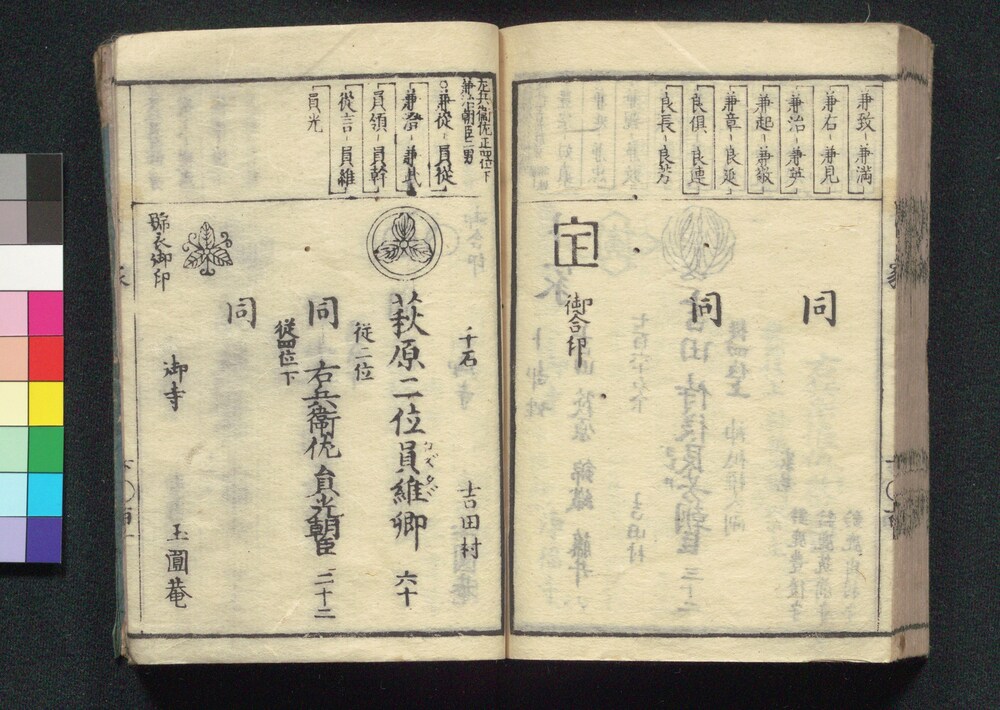 兼致 兼満
兼右 兼見
兼治 兼英
兼起 兼敬
兼章 良延
良倶 良連
良長 良芳
同
同
定
御合印
左兵衛佐正四位下
兼治朝臣二男
兼従 員従
兼澄 兼武
員領 員幹
従言 員維
員光
千石 吉田村
萩原二位員維卿 六十
カズタダ
従二位
同 右兵衛佐員光朝臣 三十二
従四位下
同
御寺 玉圓菴
御印